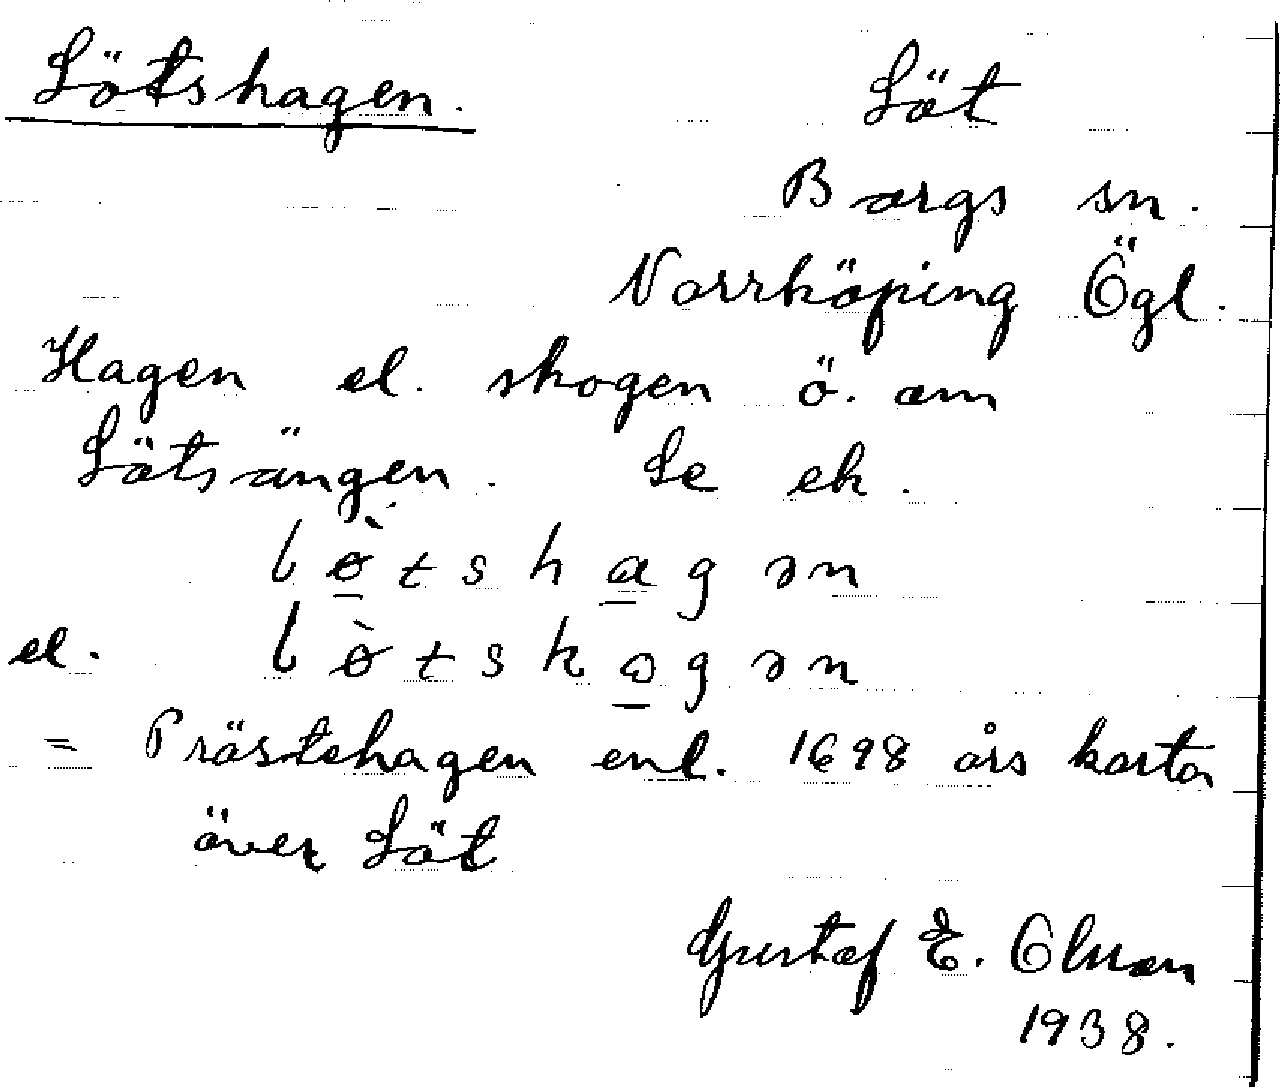 Lötshagen.
Löt
Borgs sn.
Norrköping Ögl.
Hagen el. skogen ö. om
Lötsängen. Se ek.
lø̀tshagən
el. lø̀tskogən
= Prästehagen enl. 1698 års karta
över Löt
Gustaf E. Olsson
1938.